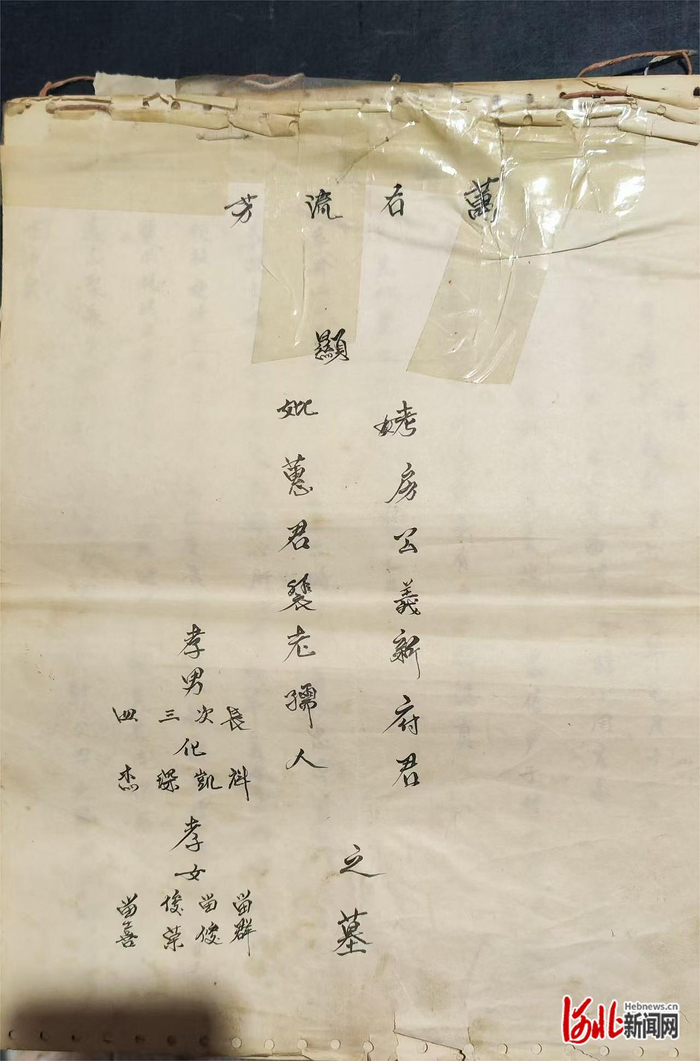 萬石流芳
顯
考房公義新府君
妣蕙君裴老孺人
之墓
孝男
長 次 三 四
化
凱 琛 杰
孝女
留群 留俊 俊荣 留喜
Hebnews.cn
河北新闻网